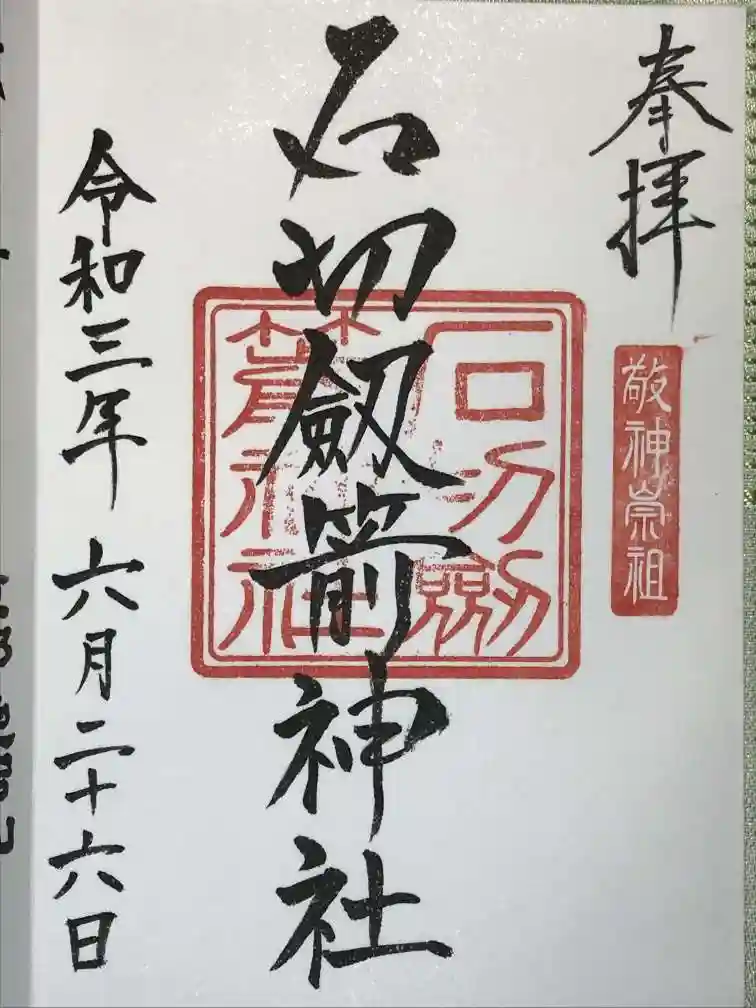 奉拝
敬神崇祖
石切劔箭神社
石切劔
箭神社
令和三年 六月二十六日